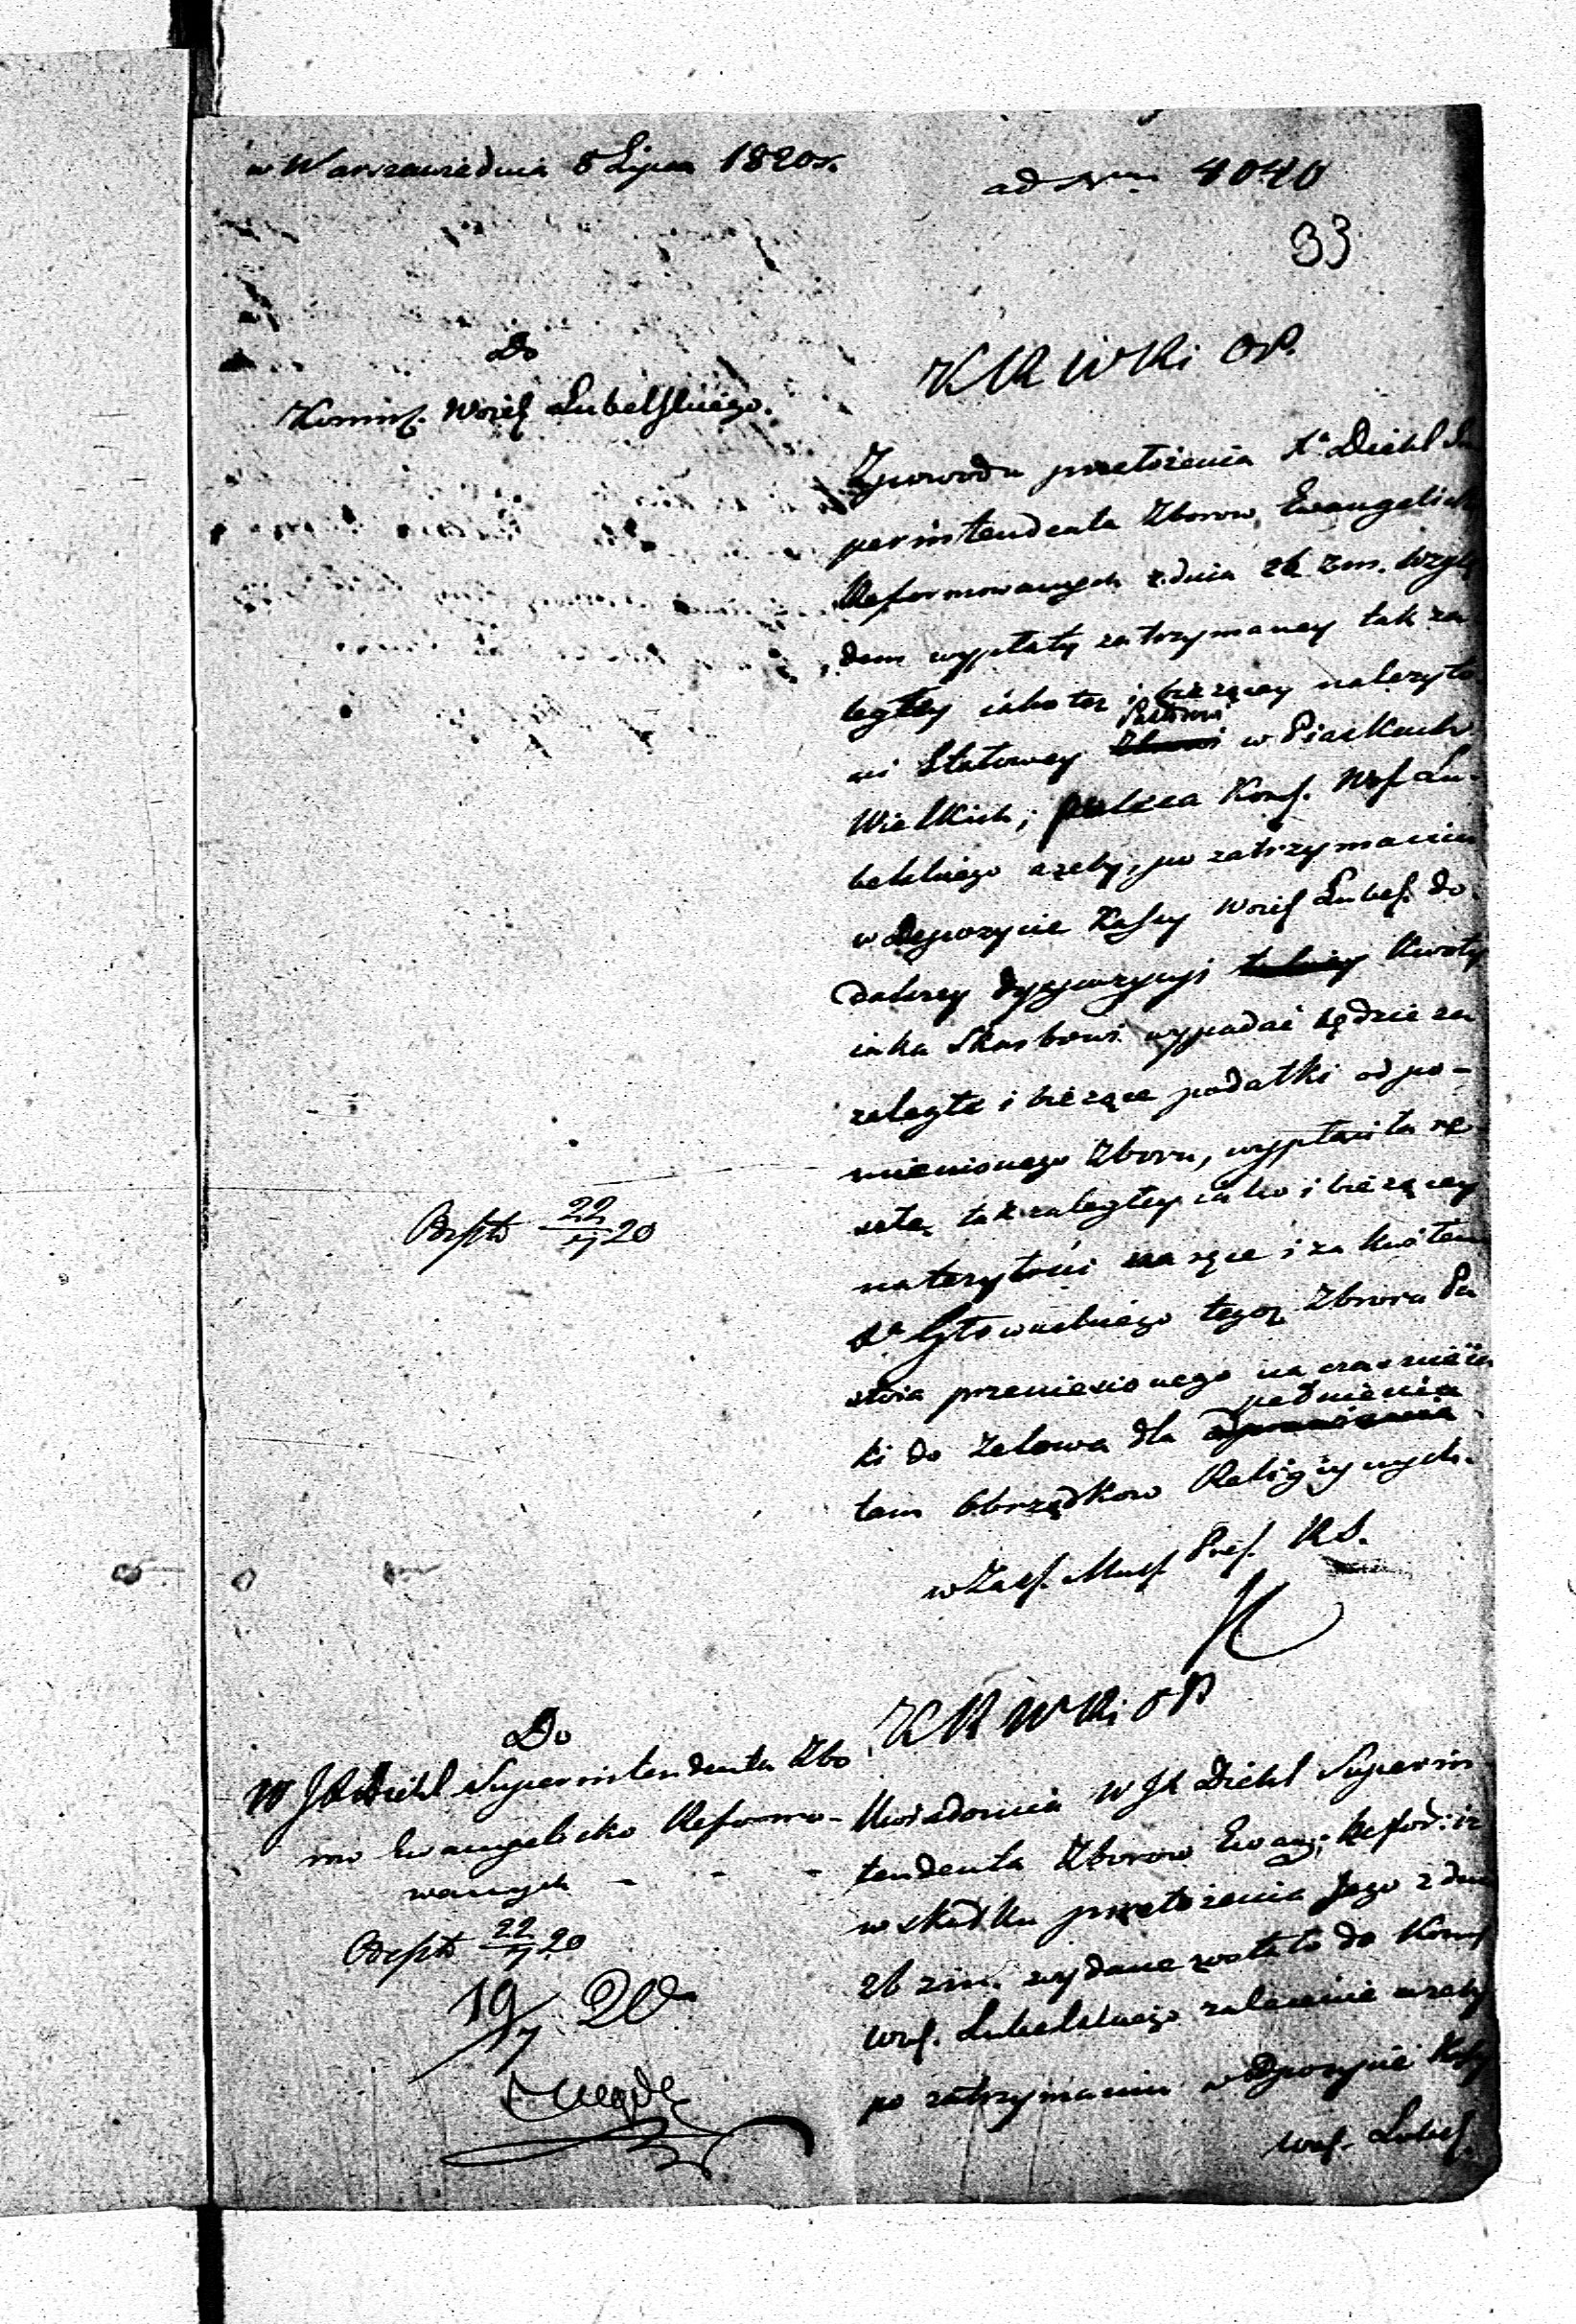 w Warszawie dnia 8 Lipca 1820r.
ad Nrm 4040
33
Do
Komiss. Wojew Lubelskiego.
KRWRiOP.
Z powodu przełożenia Xa Diehl Su
perintendenta Zborow Ewangelick
Reformowanych z dnia 26 z.m. wzglę
dem wypłaty zatrzymaney tak za
ległey iako też i bieżącey należyto
ści Etatowey Pastorowi w Piaskach
Wielkich; poleca Komss. Wof. Lu-
belskiego ażeby, po zatrzymaniu
w Depozycie Kassy Wojew Lubel. do
dalszey dyspozycyi kwoty
iaka Skarbowi wypadać będzie za
zaległe i bieżące podatki od po-
mienionego Zboru, wypłaciła re
sztę tak zaległey iako i bieżącey
należytości na ręce i za kwitem
Xa Głowackiego tegoż Zboru Pa
stora przeniesionego na czas nieia
ki do Zelowa dla pełnienia
tam Obrządkow Religiynych.
w Zast. Min. Prez. RS.
Exped 22/7 20
Do
WJX Diehl Superintendenta Zbo
row Ewangelicko Reformo-
wanych
Exped 22/7 20
19/7 20
KRWRiOP
Uwiadomia WJX Diehl Superin
tendenta Zborow Ewang: Refor: iż
w skutku przełożenia Jego z dnia
26 z.m. wydane zostało do Komss
Wof. Lubelskiego zalecenie ażeby
po zatrzymaniu w Depozycie Kassy
Wof. Lubel.